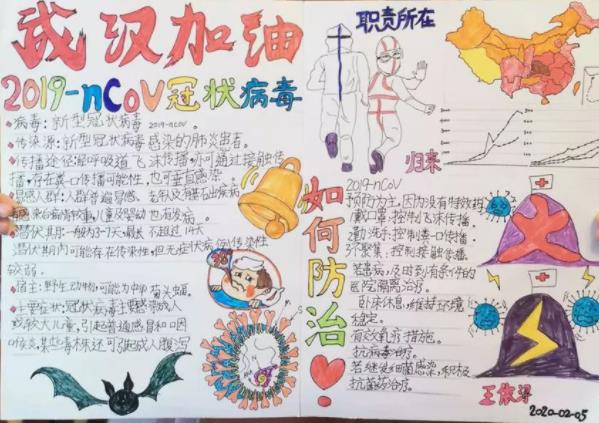 武汉加油
2019-nCoV冠状病毒
病毒：新型冠状病毒 2019-nCoV。
传染源：新型冠状病毒感染的肺炎患者。
传播途径：经呼吸道飞沫传播，亦可通过接触传
播，存在粪口传播可能性，也可垂直感染。
易感人群：人群普遍易感。老年人及有基础疾病
者感染后病情较重，儿童及婴幼也有发病。
潜伏期：一般为3-7天，最长不超过14天
潜伏期内可能存在传染性，但无症状病例传染性
较弱。
宿主：野生动物，可能为中华菊头蝠。
主要症状：冠状病毒主要感染成人
或较大儿童，引起普通感冒和口因
咳炎，某些毒株还可引起成人腹泻
职责所在
归来
如何防治！
2019-nCoV
预防为主，因为没有特效药
戴口罩：控制飞沫传播。
勤洗手：控制粪口传播。
不聚集：控制接触传播。
若患病，及时到有条件的
医院隔离治疗。
卧床休息，维持环境
稳定。
有效氧疗措施。
抗病毒治疗。
若继发细菌感染，积极
抗菌药治疗。
2020-02-05